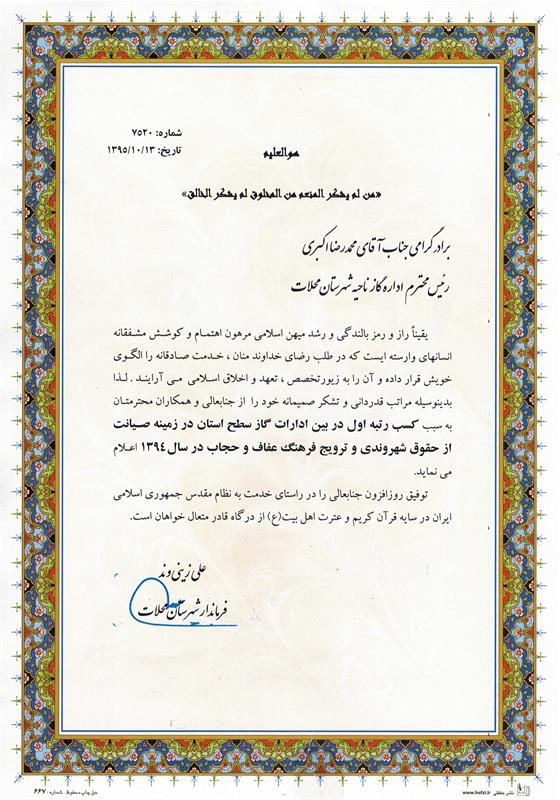 شماره: ۷۵۲۰
تاریخ: ۱۳۹۵/۱۰/۱۳
هوالعلیم
«من لم یشکر المنعم من المخلوق لم یشکر الخالق»
برادر گرامی جناب آقای محمدرضا اکبری
رئیس محترم اداره گاز ناحیه شهرستان محلات
یقیناً راز و رمز بالندگی و رشد میهن اسلامی مرهون اهتمام و کوشش مشفقانه
انسانهای وارسته ایست که در طلب رضای خداوند منان ، خدمت صادقانه را الگوی
خویش قرار داده و آن را به زیورتخصص ، تعهد و اخلاق اسلامی می آرایند . لذا
بدینوسیله مراتب قدردانی و تشکر صمیمانه خود را از جنابعالی و همکاران محترمتان
به سبب کسب رتبه اول در بین ادارات گاز سطح استان در زمینه صیانت
از حقوق شهروندی و ترویج فرهنگ عفاف و حجاب در سال ۱۳۹۴ اعلام
می نماید.
توفیق روزافزون جنابعالی را در راستای خدمت به نظام مقدس جمهوری اسلامی
ایران در سایه قرآن کریم و عترت اهل بیت(ع) از درگاه قادر متعال خواهان است.
علی زینی وند
فرماندار شهرستان محلات
حق چاپ محفوظ. شماره: ۶۶۷
نشر حفظی www.hefzi.ir